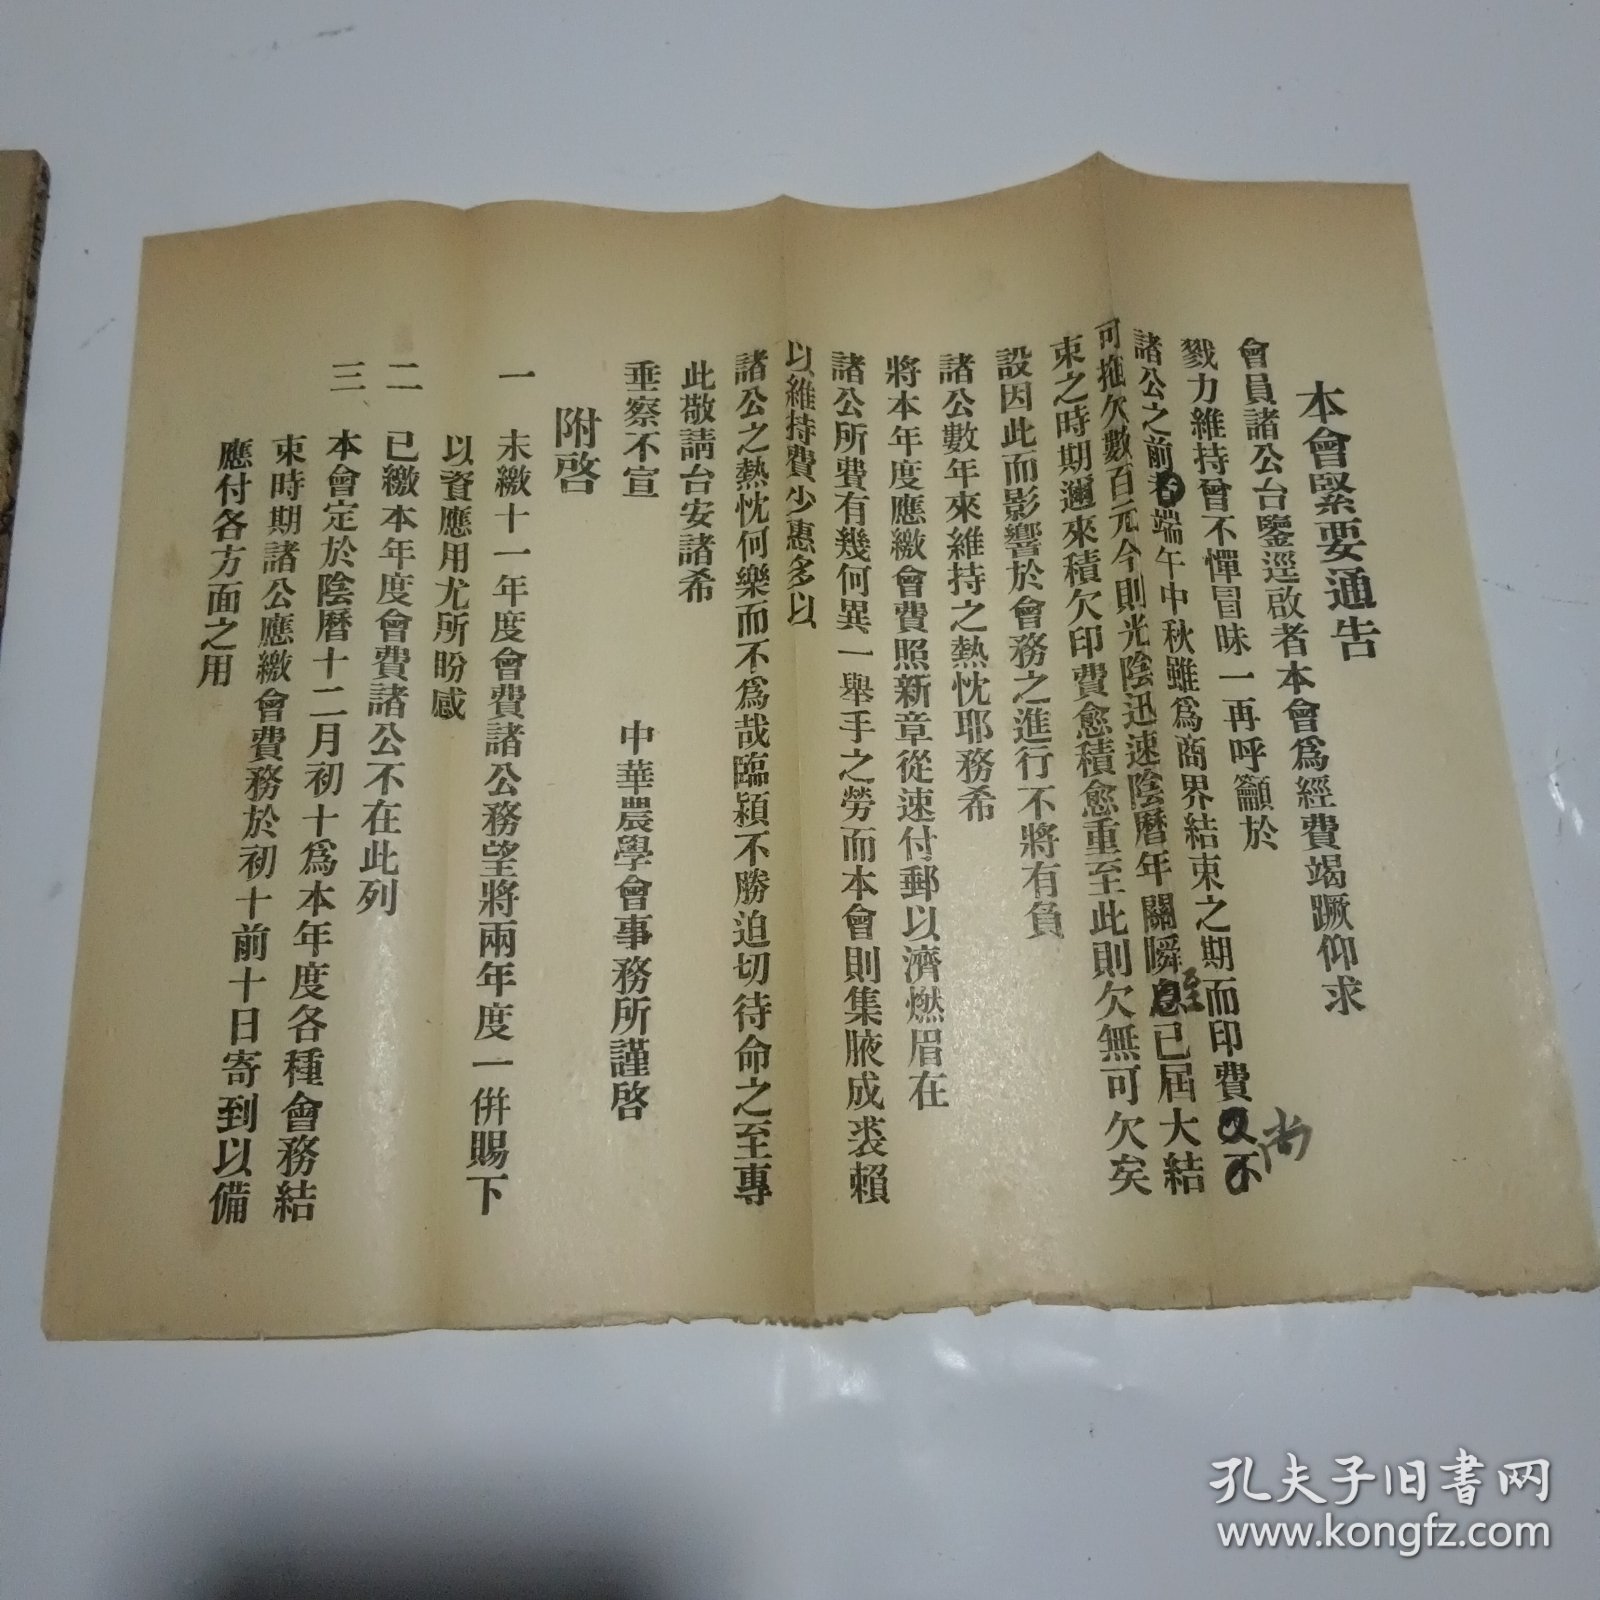 本會緊要通告
會員諸公台鑒逕啟者本會爲經費竭蹶仰求
戮力維持曾不憚冒昧一再呼籲於
諸公之前端午中秋雖爲商界結束之期而印費尚
可拖欠數百元今則光陰迅速陰曆年關瞬已屆大結
束之時期邇來積欠印費愈積愈重至此則欠無可欠矣
設因此而影響於會務之進行不將有負
諸公數年來維持之熱忱耶務希
將本年度應繳會費照新章從速付郵以濟燃眉在
諸公所費有幾何異一舉手之勞而本會則集腋成裘賴
以維持費少惠多以
諸公之熱忱何樂而不爲哉臨穎不勝迫切待命之至專
此敬請台安諸希
垂察不宣
中華農學會事務所謹啓
附啓
一 未繳十一年度會費諸公務望將兩年度一併賜下
以資應用尤所盼感
二 已繳本年度會費諸公不在此列
三 本會定於陰曆十二月初十爲本年度各種會務結
束時期諸公應繳會費務於初十前十日寄到以備
應付各方面之用
孔夫子旧书网
www.kongfz.com